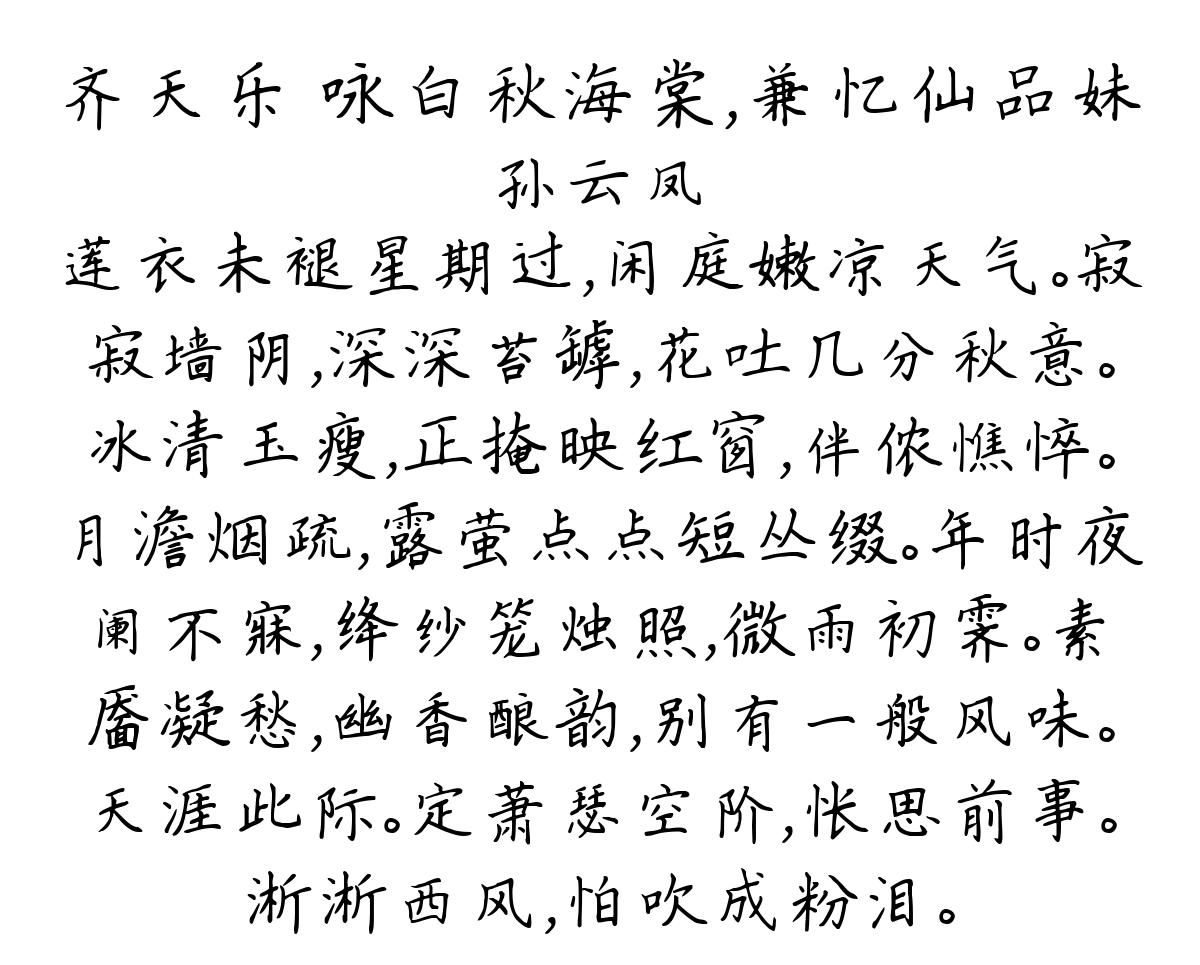 齐天乐 咏白秋海棠,兼忆仙品妹
孙云凤
莲衣未褪星期过,闲庭嫩凉天气。寂
寂墙阴,深深苔罅,花吐几分秋意。
冰清玉瘦,正掩映红窗,伴侬憔悴。
月澹烟疏,露萤点点短丛缀。年时夜
阑不寐,绛纱笼烛照,微雨初霁。素
靥凝愁,幽香酿韵,别有一般风味。
天涯此际。定萧瑟空阶,怅思前事。
淅淅西风,怕吹成粉泪。